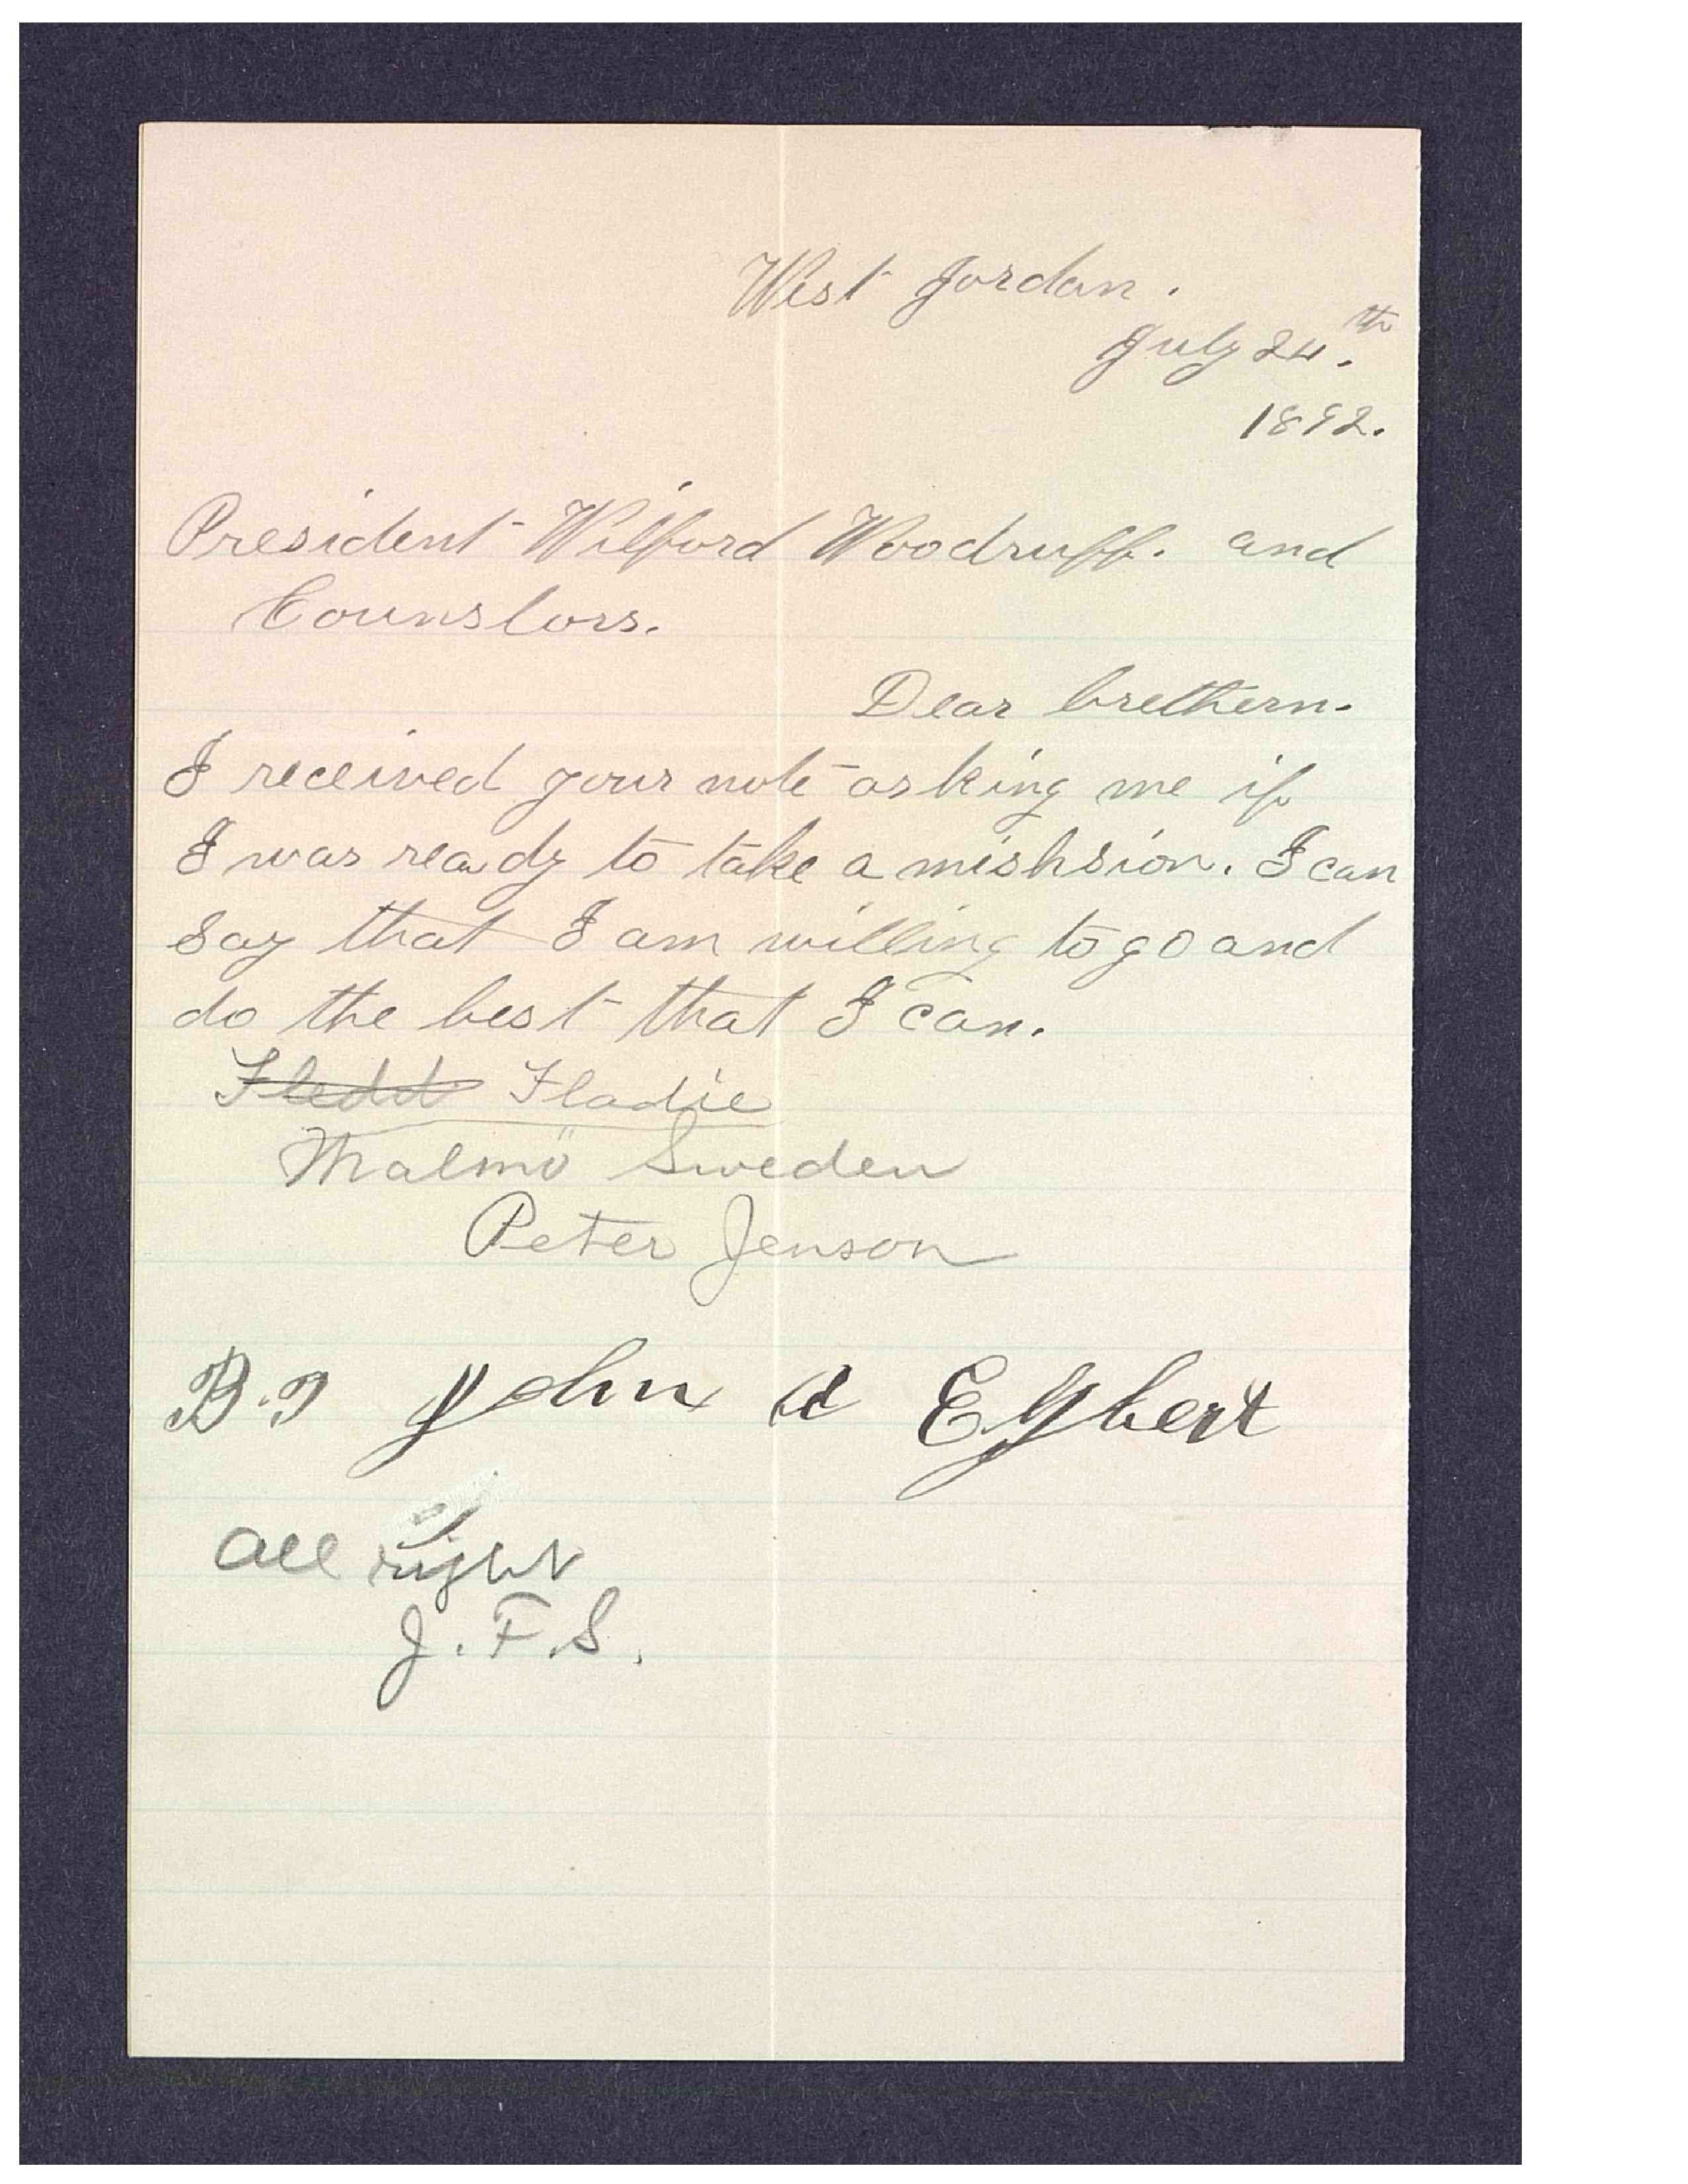 West Jordan.
July 24.th
1892.
President Wilford Woodruff. and
Counslors.
Dear brethern.
I received your note asking me if
I was ready to take a mishsion. I can
say that I am willing to go and
do the best that I can.
Fledd Fladie
Malmö Sweden
Peter Jenson
John A Egbert
All right
J. F. S.